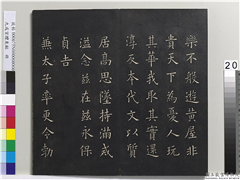 樂不般遊黃屋非
貴天下為憂人玩
其華我取其實還
淳反本代文以質
居高思墜持滿戒
溢念茲在茲永保
貞吉
兼太子率更令勃
20